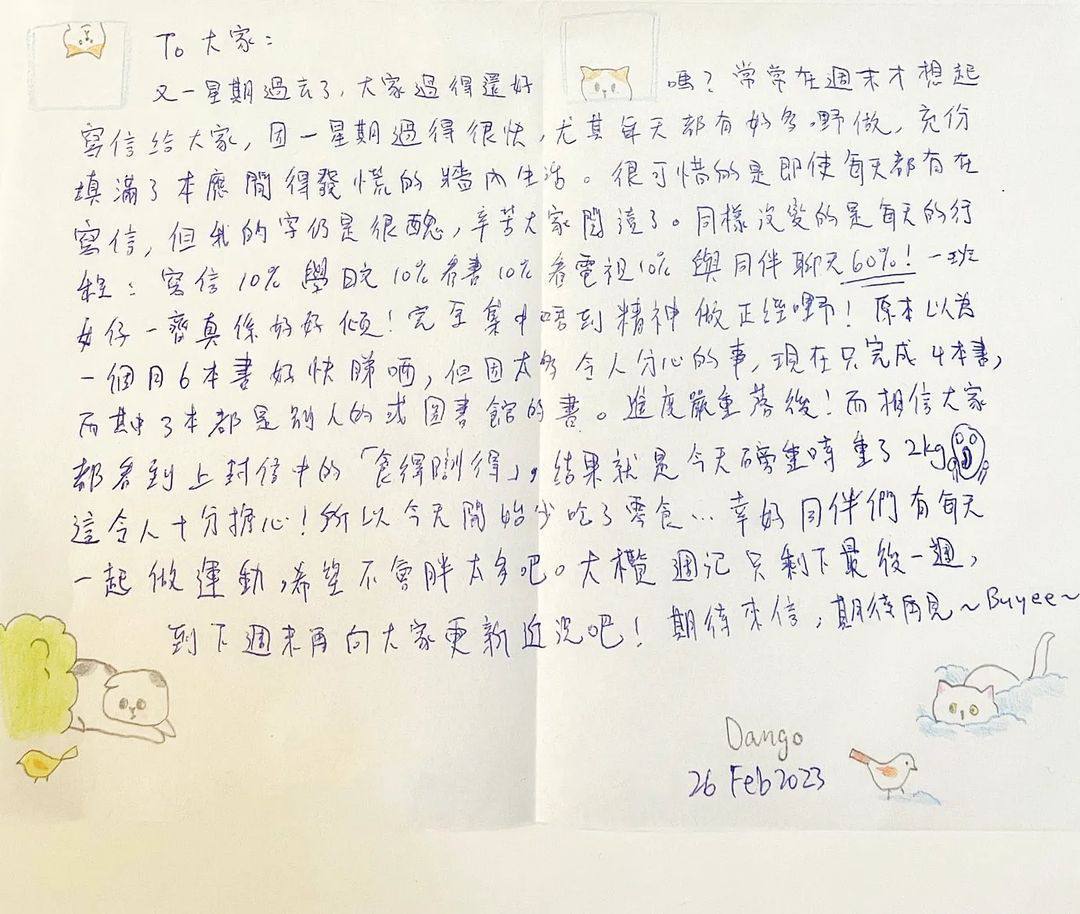 To 大家：
又一星期過去了，大家過得還好嗎？常常在週末才想起
寫信給大家，因一星期過得很快，尤其每天都有好多嘢做，充份
填滿了本應閒得發慌的牆內生活。很可惜的是即使每天都有在
寫信，但我的字仍是很醜，辛苦大家閱讀了。同樣沒變的是每天的行
程：寫信10% 學日文10% 看書10% 看電視10% 與同伴聊天60%！一班
女仔一齊真係好好傾！完全集中唔到精神做正經嘢！原本以為
一個月6本書好快睇晒，但因太多令人分心的事，現在只完成4本書，
而其中3本都是別人的或圖書館的書。進度嚴重落後！而相信大家
都看到上封信中的「食得瞓得」，結果就是今天磅重時重了2kg
這令人十分擔心！所以今天開始少吃了零食…幸好同伴們有每天
一起做運動，希望不會胖太多吧。大欖週記只剩下最後一週，
到下週末再向大家更新近況吧！期待來信，期待再見～Buyee～
Dango
26 Feb 2023